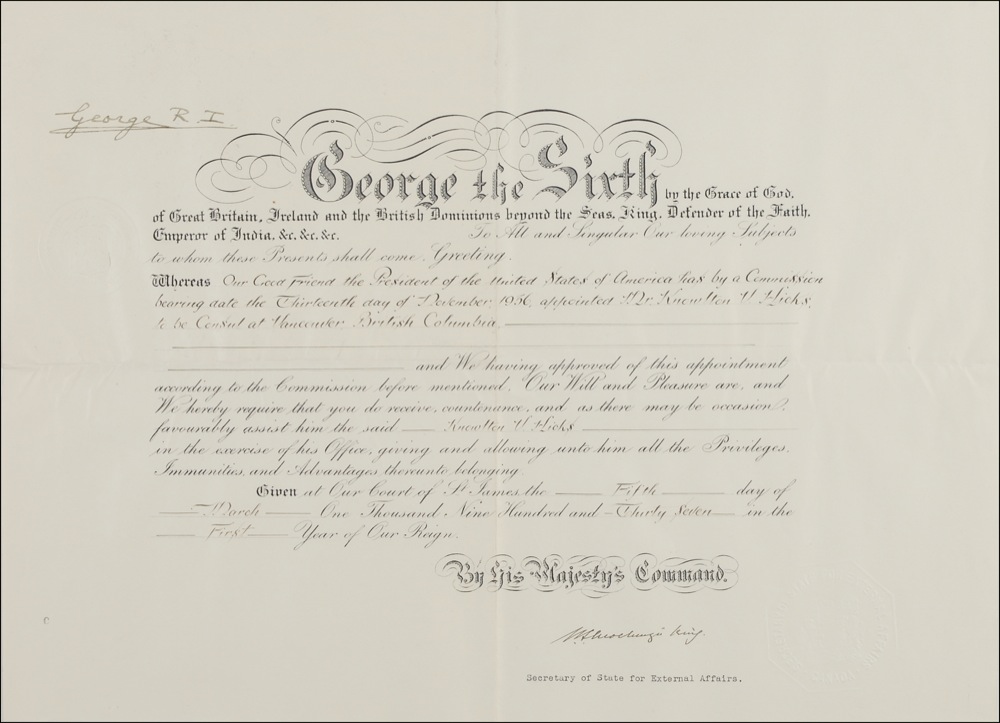 George R I
George the Sixth by the Grace of God,
of Great Britain, Ireland and the British Dominions beyond the Seas, King, Defender of the Faith,
Emperor of India, &c. &c. &c. To All and Singular Our loving Subjects
to whom these Presents shall come Greeting.
Whereas Our Good Friend the President of the United States of America has by a Commission
bearing date the Thirteenth day of November, 1936, appointed Mr. Knowlton V. Hicks,
to be Consul at Vancouver, British Columbia,
and We having approved of this appointment
according to the Commission before mentioned, Our Will and Pleasure are, and
We hereby require that you do receive, countenance, and as there may be occasion,
favourably assist him the said Knowlton V. Hicks
in the exercise of his Office, giving and allowing unto him all the Privileges,
Immunities, and Advantages thereunto belonging.
Given at Our Court of St James, the Fifth day of
March One Thousand Nine Hundred and Thirty Seven in the
First Year of Our Reign.
By His Majesty's Command.
W L Mackenzie King.
Secretary of State for External Affairs.